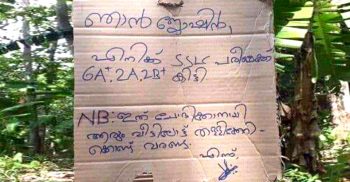 ഞാൻ ജോഷിൻ,
എനിക്ക് SSLC പരീക്ഷക്ക്
6A⁺ 2A 2B⁺ കിട്ടി
NB: ഇത് ചോദിക്കാനായി
ആരും വീട്ടിലോട്ട്
കൊണ്ട് വരണ്ട.
എന്ന്,